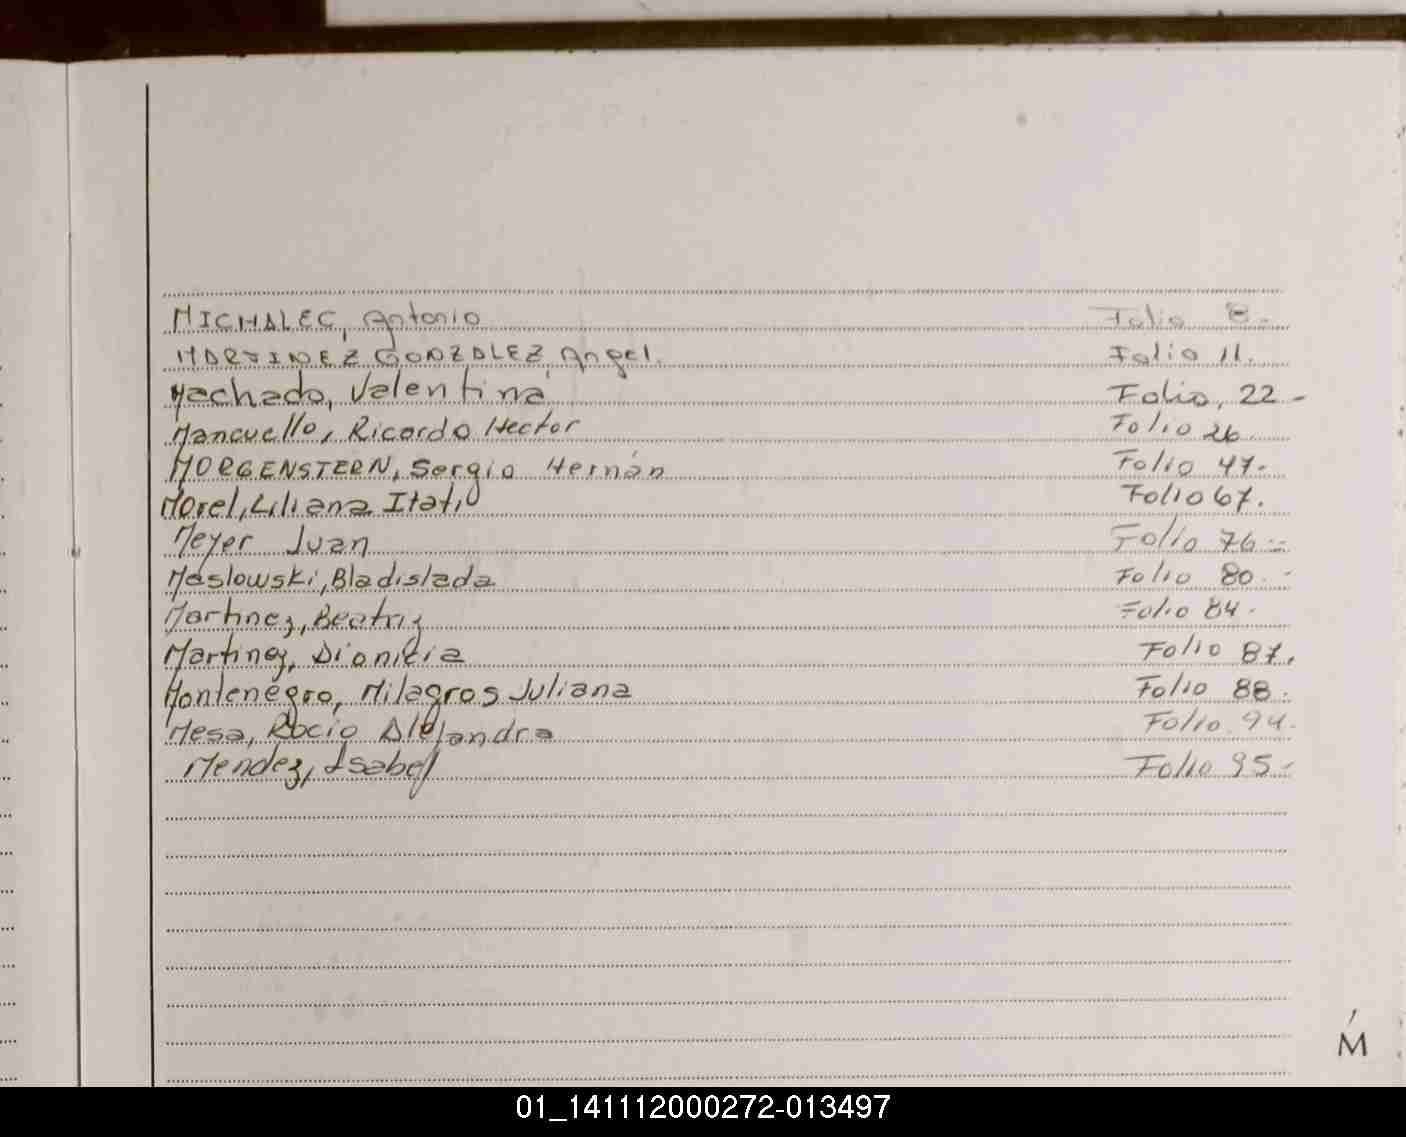 MICHALEC, Antonio Folio 8.-
MARTINEZ GONZALEZ, Angel. Folio 11.
Machado, Valentina Folio, 22-
Mancuello, Ricardo Hector Folio 26
MORGENSTERN, Sergio Hernán Folio 47.-
Morel, Liliana Itatí Folio 67.
Meyer Juan Folio 76.-
Maslowski, Bladislada Folio 80.-
Martinez, Beatriz Folio 84.
Martinez, Dionicia Folio 87.
Montenegro, Milagros Juliana Folio 88.
Mesa, Rocio Alejandra Folio 94.
Mendez, Isabel Folio 95.-
M
01_141112000272-013497